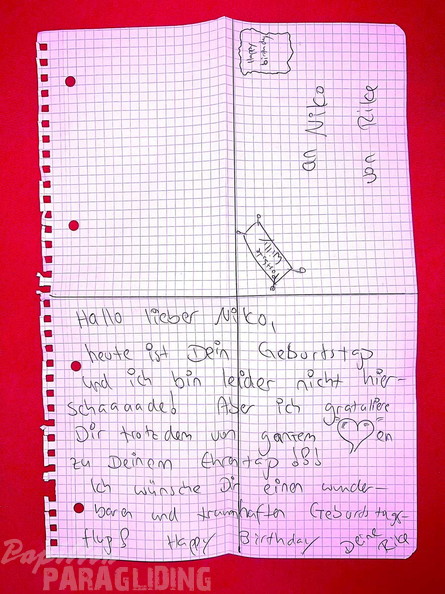 Happy
birthday
an Niko
von Rike
Hallo lieber Niko,
heute ist Dein Geburtstag
und ich bin leider nicht hier-
schaaaade! Aber ich gratuliere
Dir trotzdem von ganzem ♡en
zu Deinem Ehrentag !!!
Ich wünsche Dir einen wunder-
baren und traumhaften Geburtstags-
flug! Happy Birthday Deine
Rike
Papillon
PARAGLIDING